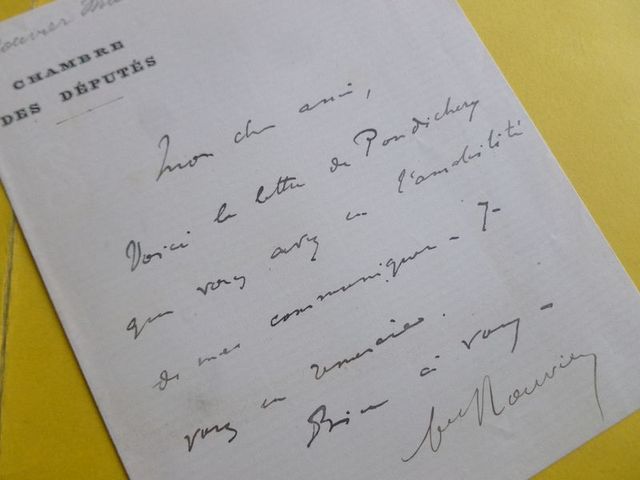 Rouvier
CHAMBRE
DES DÉPUTÉS
Mon cher ami,
Voici la lettre de Pondichery
que vous avez eu l'amabilité
de me communiquer - J-
vous en remercie.
Bien à vous -
Rouvier